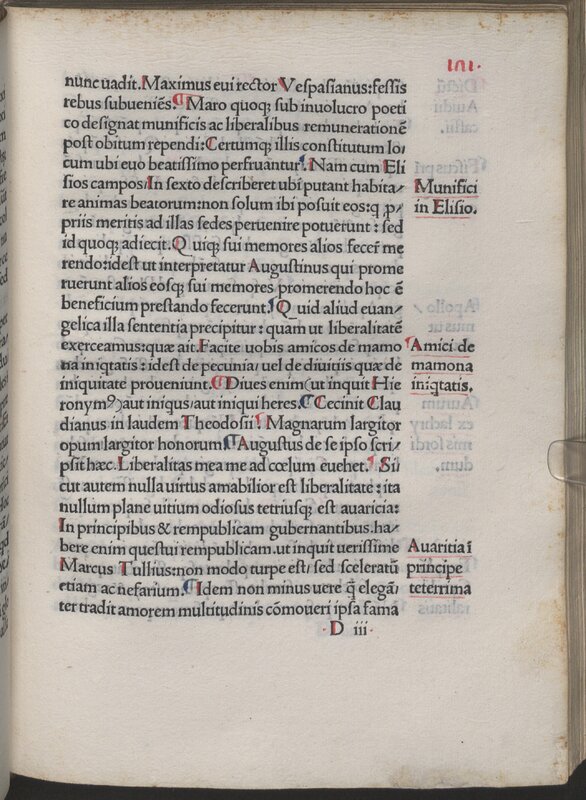 nunc uadit. Maximus eui rector Vespasianus: fessis
rebus subueniẽs. ¶ Maro quoq; sub inuolucro poeti
co designat munificis ac liberalibus remunerationẽ
post obitum rependi: Certumq; illis constitutum lo/
cum ubi euo beatissimo perfruantur. ¶ Nam cum Eli
sios campos/ In sexto describeret ubi putant habita/
re animas beatorum: non solum ibi posuit eos: q p/
priis meritis ad illas sedes peruenire potuerunt: sed
id quoq; adiecit. Quiq; sui memores alios fecerẽ me
rendo: idest ut interpretatur Augustinus qui prome
ruerunt alios eosq; sui memores promerendo hoc ẽ
beneficium prestando fecerunt. ¶ Quid aliud euan/
gelica illa sententia precipitur: quam ut liberalitatẽ
exerceamus: quæ ait. Facite uobis amicos de mamo
na iniqtatis: idest de pecunia/ uel de diuitiis quæ de
iniquitate proueniunt. ¶ Diues enim (ut inquit Hie
ronymꝰ) aut iniqus/ aut iniqui heres. ¶ Cecinit Clau
dianus in laudem Theodosii ¶ Magnarum largitor
opum largitor honorum ¶ Augustus de se ipso scri/
psit hæc. Liberalitas mea me ad cœlum euehet. ¶ Si
cut autem nulla uirtus amabilior est liberalitate: ita
nullum plane uitium odiosus tetriusq; est auaricia:
In principibus & rempublicam gubernantibus. ha/
bere enim questui rempublicam. ut inquit uerissime
Marcus Tullius: non modo turpe est/ sed sceleratũ
etiam ac nefarium. ¶ Idem non minus uere q̃ elegã/
ter tradit amorem multitudinis cõmoueri ipsa fama
D iii
Munifici
in Elisio.
Amici de
mamona
iniqtatis.
Auaritia ĩ
principe
teterrima